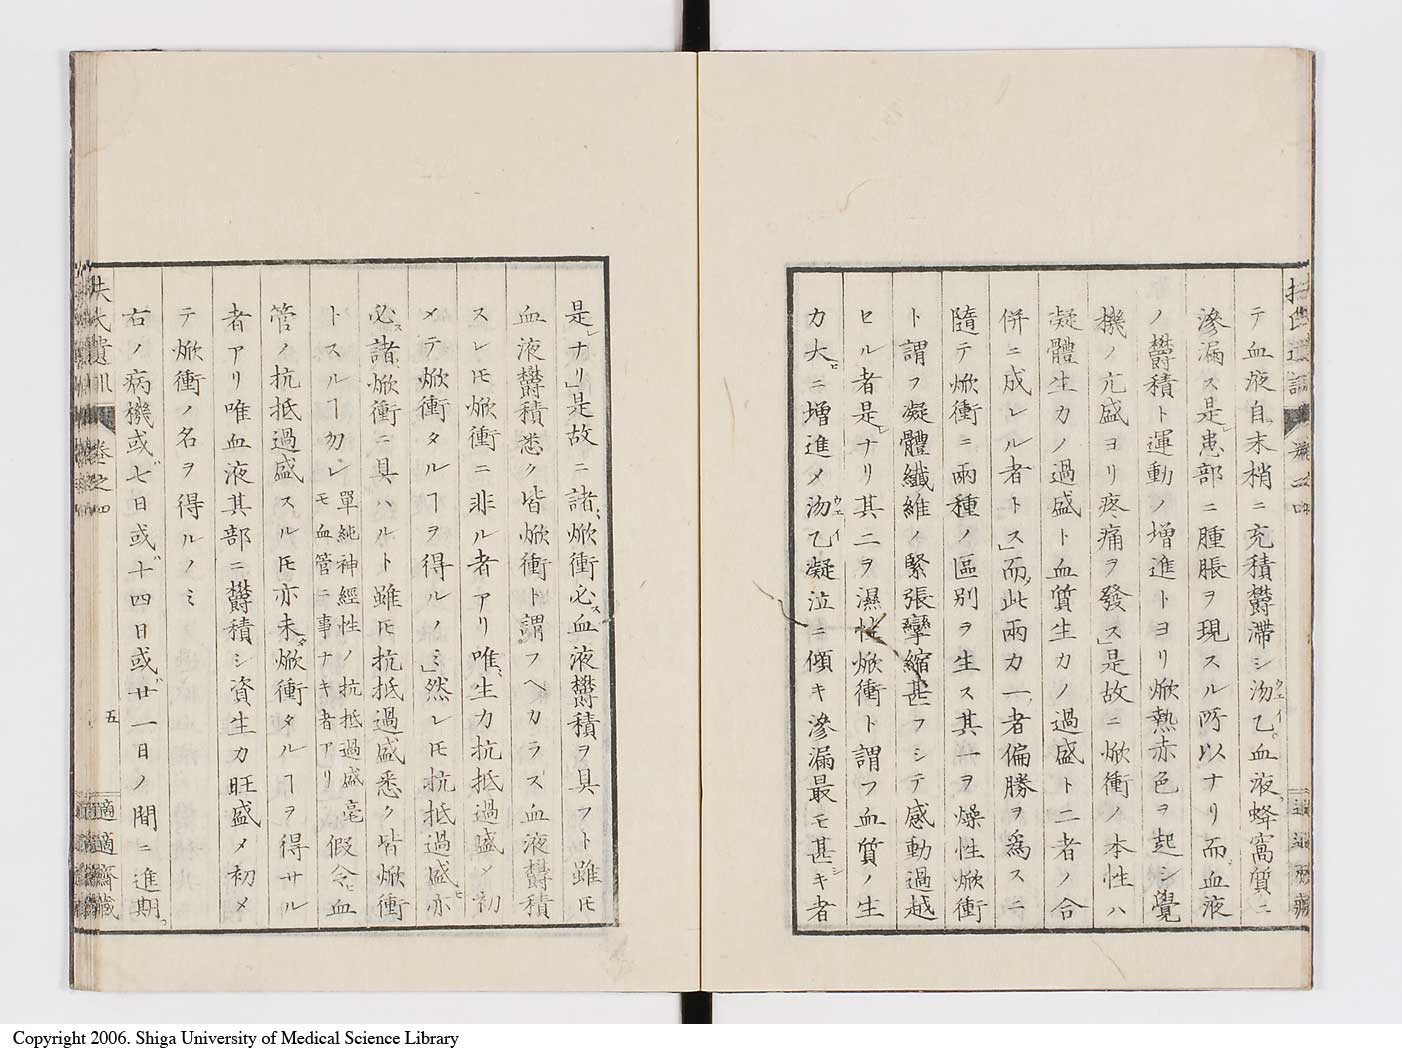 テ血液自末梢ニ充積欝滯シ沕乙血液蜂窩質ニ
滲漏ス是患部ニ腫脹ヲ現スル所以ナリ而血液
ノ欝積ト運動ノ增進トヨリ焮熱赤色ヲ起シ覺
機ノ亢盛ヨリ疼痛ヲ發ス」是故ニ焮衝ノ本性ハ
凝體生力ノ過盛ト血質生力ノ過盛ト二者ノ合
併ニ成レル者トス」而此兩力一者偏勝ヲ爲スニ
隨テ焮衝ニ兩種ノ區別ヲ生ス其一ヲ燥性焮衝
ト謂フ凝體纖維ノ緊張攣縮甚フシテ感動過越
セル者是ナリ其二ヲ濕性焮衝ト謂フ血質ノ生
力大ニ增進メ沕乙凝泣ニ傾キ滲漏最モ甚キ者
是ナリ」是故ニ諸焮衝必血液欝積ヲ具フト雖ㄷモ
血液欝積悉ク皆焮衝ト謂フヘカラス血液欝積
スレㄷモ焮衝ニ非ル者アリ唯生力抗抵過盛メ初
メテ焮衝タルヿヲ得ルノミ」然レㄷモ抗抵過盛亦
必諸焮衝ニ具ハルト雖ㄷモ抗抵過盛悉ク皆焮衝
トスルヿ勿レ單純神經性ノ抗抵過盛毫モ血管ニ事ナキ者アリ假令血
管ノ抗抵過盛スルㄷモ亦未焮衝タルヿヲ得サル
者アリ唯血液其部ニ欝積シ資生力旺盛メ初メ
テ焮衝ノ名ヲ得ルノミ
右ノ病機或七日或十四日或廿一日ノ間ニ進期
卷之四
五
適適齋藏